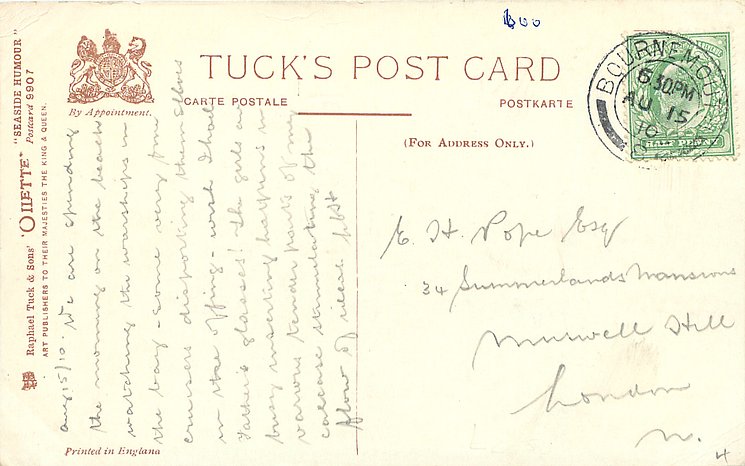 600
TUCK'S POST CARD
CARTE POSTALE
POSTKARTE
By Appointment.
(FOR ADDRESS ONLY.)
Raphael Tuck & Sons' "OILETTE" "SEASIDE HUMOUR" Postcard 9907
ART PUBLISHERS TO THEIR MAJESTIES THE KING & QUEEN.
Printed in England
BOURNEMOUTH
6 30PM
AU 15
10
HALF PENNY
Aug 15/10. We are spending
the morning on the beach
watching the warships in
the bay - some very fine
cruisers disporting themselves
in the offing - wish I had
Father's glasses! The girls are
busy inserting hairpins in
various tender parts of my
carcase stimulating the
flow of
E. H. Pope Esq
34 Summerlands Mansions
Muswell Hill
London
N.
4